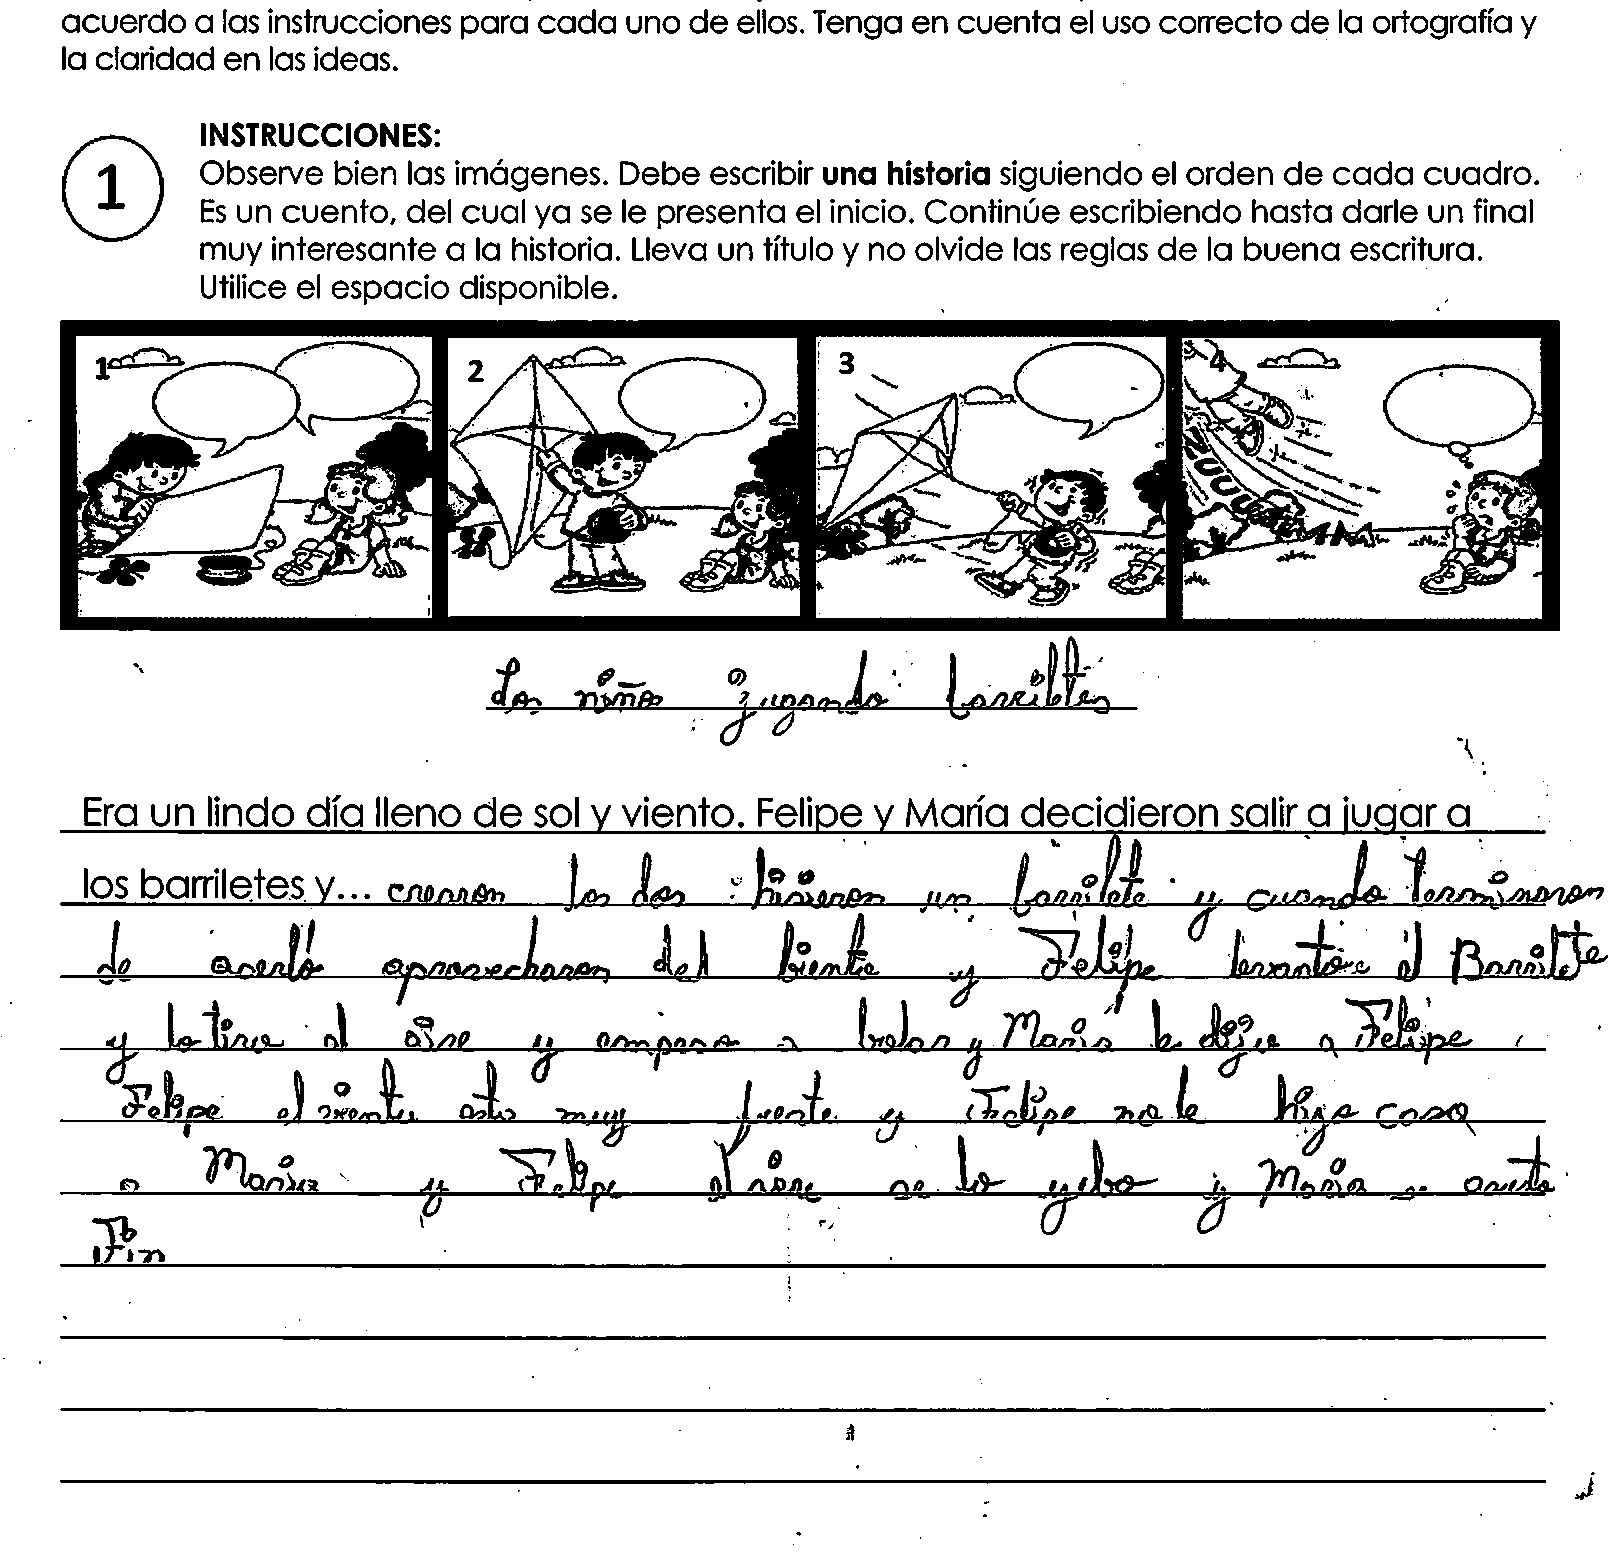 acuerdo a las instrucciones para cada uno de ellos. Tenga en cuenta el uso correcto de la ortografía y
la claridad en las ideas.
1
INSTRUCCIONES:
Observe bien las imágenes. Debe escribir una historia siguiendo el orden de cada cuadro.
Es un cuento, del cual ya se le presenta el inicio. Continúe escribiendo hasta darle un final
muy interesante a la historia. Lleva un título y no olvide las reglas de la buena escritura.
Utilice el espacio disponible.
1 2 3 4
ZUUU
Los niños jugando barriletes
Era un lindo día lleno de sol y viento. Felipe y María decidieron salir a jugar a
los barriletes y... crearon los dos hisieron un barrilete y cuando terminaron
de aserlo aprovecharon del biento y Felipe levanto el Barrilete
y lo tiro al aire y empeso a bolar y María le dijo a Felipe
Felipe el viento esta muy fuerte y Felipe no le hizo caso
a María y Felipe el aire se lo yebo y María se asusto
Fin